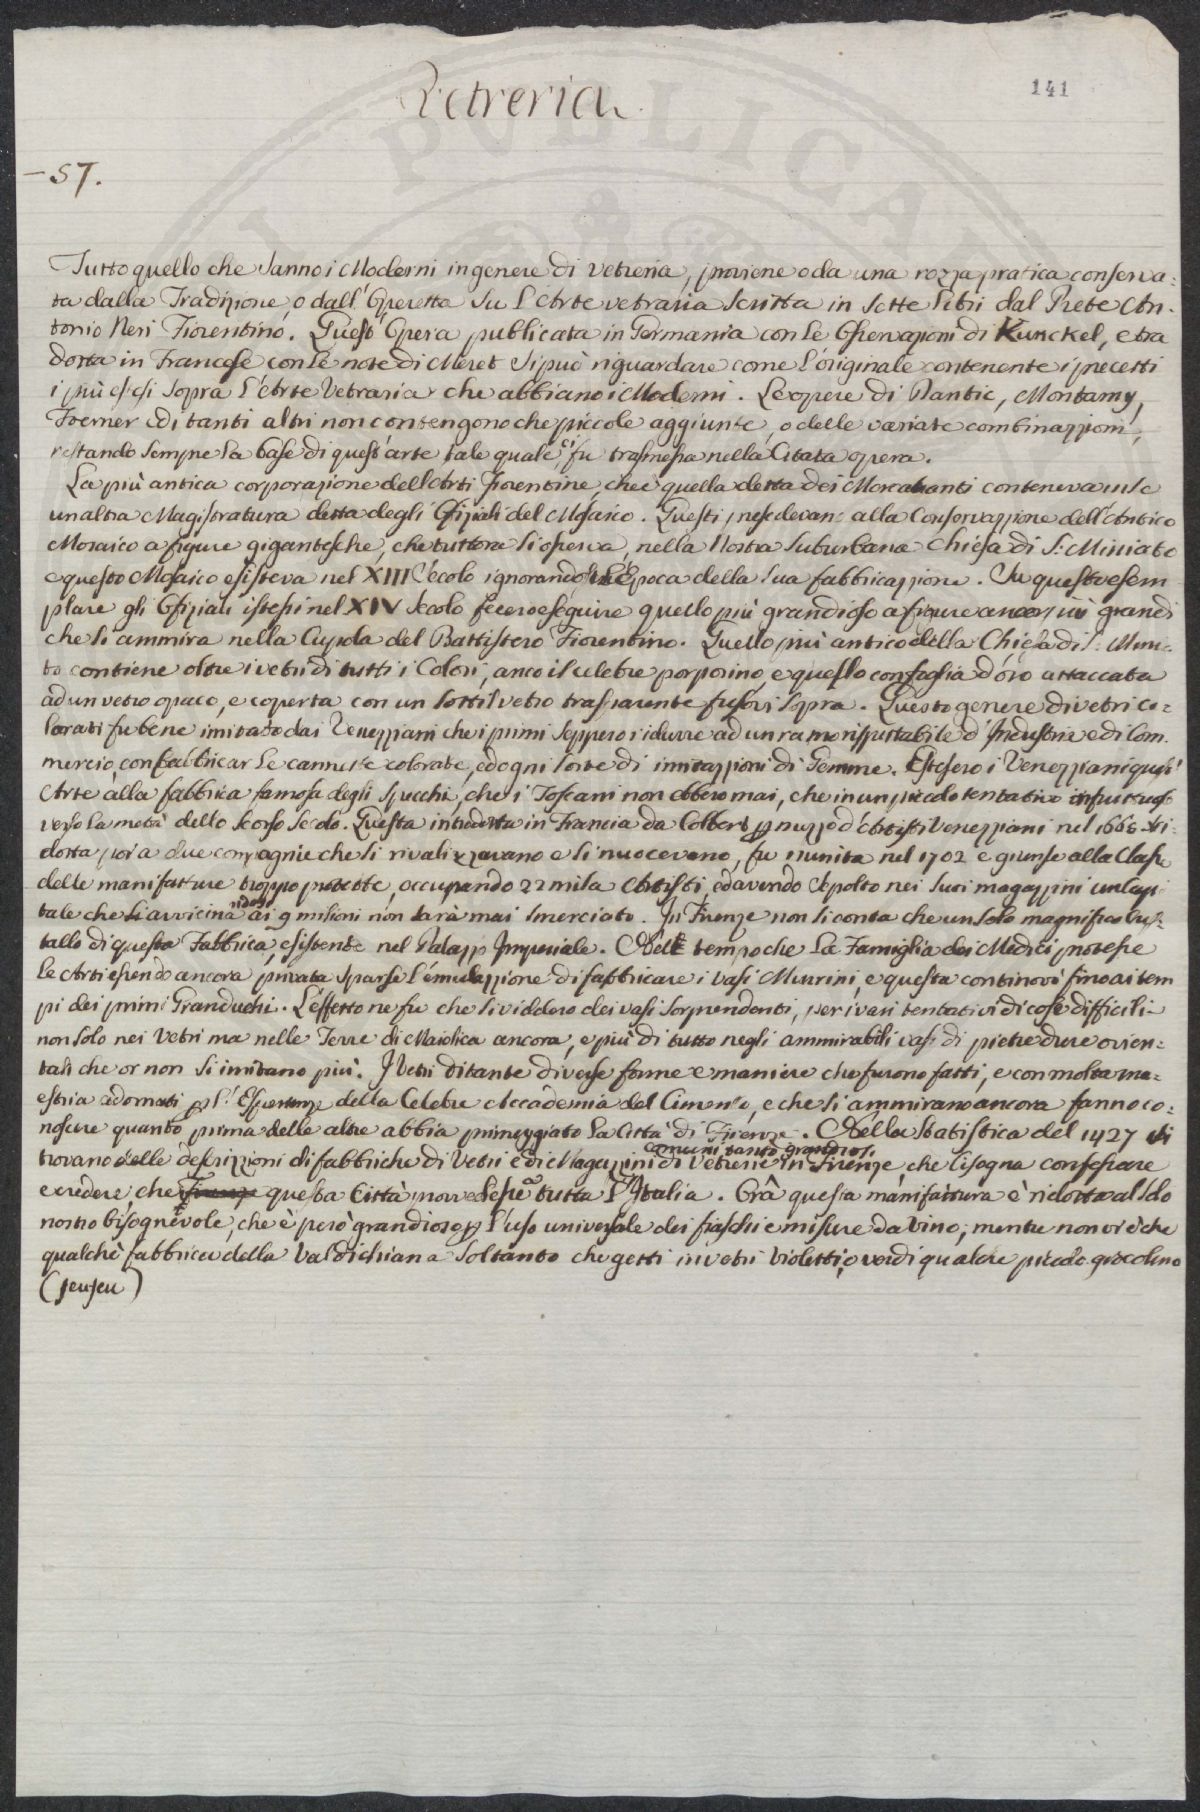 Vetreria
141
– 57.
Tutto quello che sanno i Moderni in genere di vetreria, proviene o da una rozza pratica conserva=
ta dalla Tradizione, o dall' Operetta su L'Arte vetraria scritta in sette Libri dal Prete An-
tonio Neri Fiorentino. Quest' Opera publicata in Germania con le Osservazioni di Kunckel, e tra
dotta in Francese con le note di Meret si può riguardare come l'originale contenente i precetti
i più estesi sopra L'Arte Vetraria che abbiano i Moderni. Le opere di Plantic, Montamy,
Foerner e di tanti altri non contengono che piccole aggiunte, o delle variate combinazzioni,
restando sempre la base di quest'arte tale quale ci fu trasmessa nella Citata opera.
La più antica corporazione dell'Arti Fiorentine, che è quella detta dei Mercatanti conteneva in se
un altra Magistratura detta degli Ofiziali del Mosaico. Questi presedevano alla Conservazzione dell'Antico
Mosaico a figure gigantesche, che tuttora si osserva, nella Nostra suburbana Chiesa di S: Miniato
e questo Mosaico esisteva nel XIII Secolo ignorandosi L'Epoca della sua fabbricazzione. Su questo esem
plare gli Ofiziali istessi nel XIV secolo fecero eseguire quello più grandioso a figure ancor più grandi
che si ammira nella Cupola del Battistero Fiorentino. Quello più antico della Chiesa di S: Minia-
to contiene oltre i vetri di tutti i Colori, anco il celebre porporino, e quello con foglia d'oro attaccata
ad un vetro opaco, e coperta con un sottil vetro trasparente fusovi sopra. Questo genere di vetri co=
lorati fu bene imitato dai Venezziani che i primi seppero ridurre ad un ramo rispettabile d'Industria e di Com
mercio, con fabbricar le cannette colorate, ed ogni sorte di imitazzioni di Gemme. Estesero i Venezziani quest'
Arte alla fabbrica famosa degli Specchi, che i Toscani non ebbero mai, che in un piccolo tentativo infruttuoso
verso la metà dello scorso secolo. Questa introdotta in Francia da Colbert p mezzo d'Artisti Venezziani nel 1665 ri-
dotta poi a due compagnie che si rivalizzavano e si nuocevano, fu riunita nel 1702 e giunse alla Classe
delle manifatture troppo protette, occupando 22 mila Artisti, ed avendo sepolto nei suoi magazzini un Capi
tale che si avvicina ai 9 milioni non sarà mai smerciato. In Firenze non si conta che un solo magnifico Cris-
tallo di questa Fabbrica, esistente nel Palazz Imperiale. Nell tempo che La Famiglia dei Medici protesse
Le Arti essendo ancora privata sparse l'emulazzione di fabbricare i vasi Murrini, e questa continovò fino ai tem
pi dei primi Granduchi. L'effetto ne fu che si viddero dei vasi sorprendenti, per i vari tentativi di cose difficili -
non solo nei Vetri ma nelle Terre di Maiolica ancora, e più di tutto negli ammirabili vasi di pietre dure orien-
tali che or non si imitano più. I Vetri di tante diverse forme e maniere che furono fatti, e con molta ma=
estria adornati p l'Esperienze della Celebre Accademia del Cimento, e che si ammirano ancora fanno co=
noscere quanto prima delle altre abbia primeggiato la Città di Firenze. Nella Statistica del 1427 si
trovano delle descrizzioni di fabbriche di Vetri e di Magazzini di Vetrerie in Firenze che bisogna confessare
comuni tanto grandiosi
e credere, che Firenze questa Città provvedesse tutta L'Italia. Orâ questa manifattura è ridotta al solo
nostro bisognevole, che è però grandioso p l'uso universale dei fiaschi e misure da vino, mentre non vi è che
qualche fabbrica della Valdichiana soltanto che getti in vetri violetti, o verdi qualche piccolo giocolino
(Jeujeu)